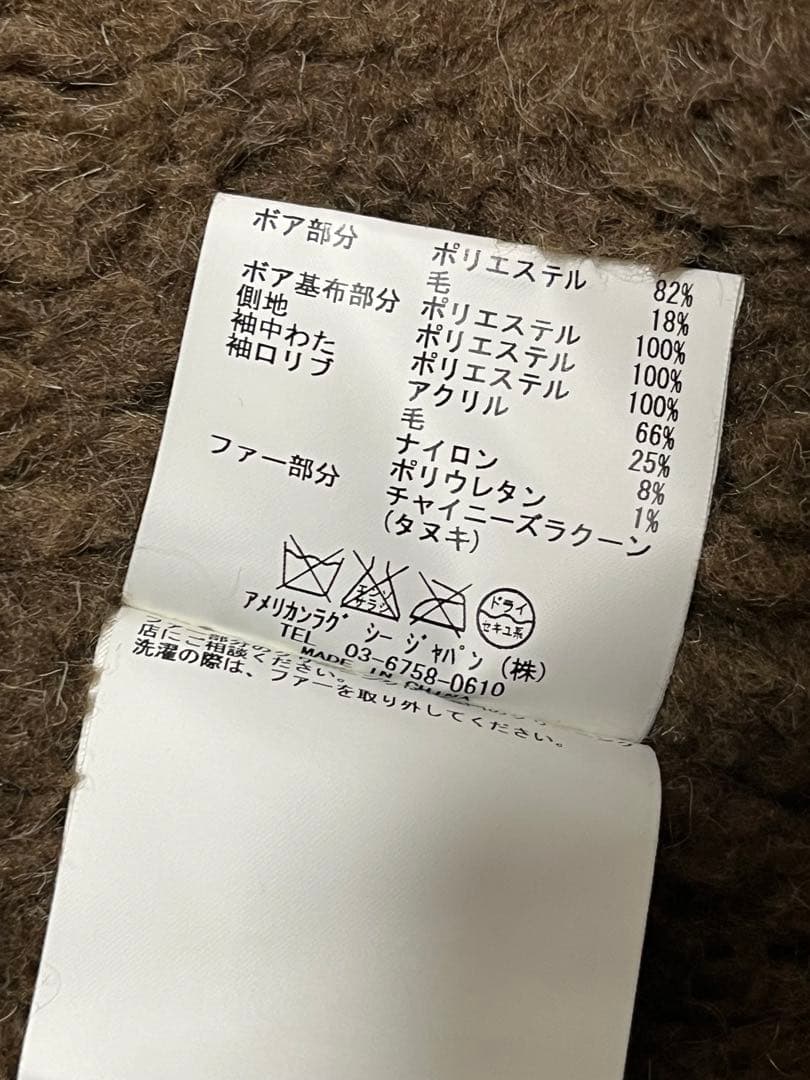 ボア部分 ポリエステル 82%
毛 18%
ボア基布部分 ポリエステル 100%
側地 ポリエステル 100%
袖中わた ポリエステル 100%
袖口リブ アクリル 66%
毛 25%
ナイロン 8%
ポリウレタン 1%
ファー部分 チャイニーズラクーン
(タヌキ)
エンソ
サラシ
ドライ
セキユ系
アメリカンラグ シー ジャパン (株)
TEL 03-6758-0610
MADE IN CHINA
店にご相談ください。
洗濯の際は、ファーを取り外してください。